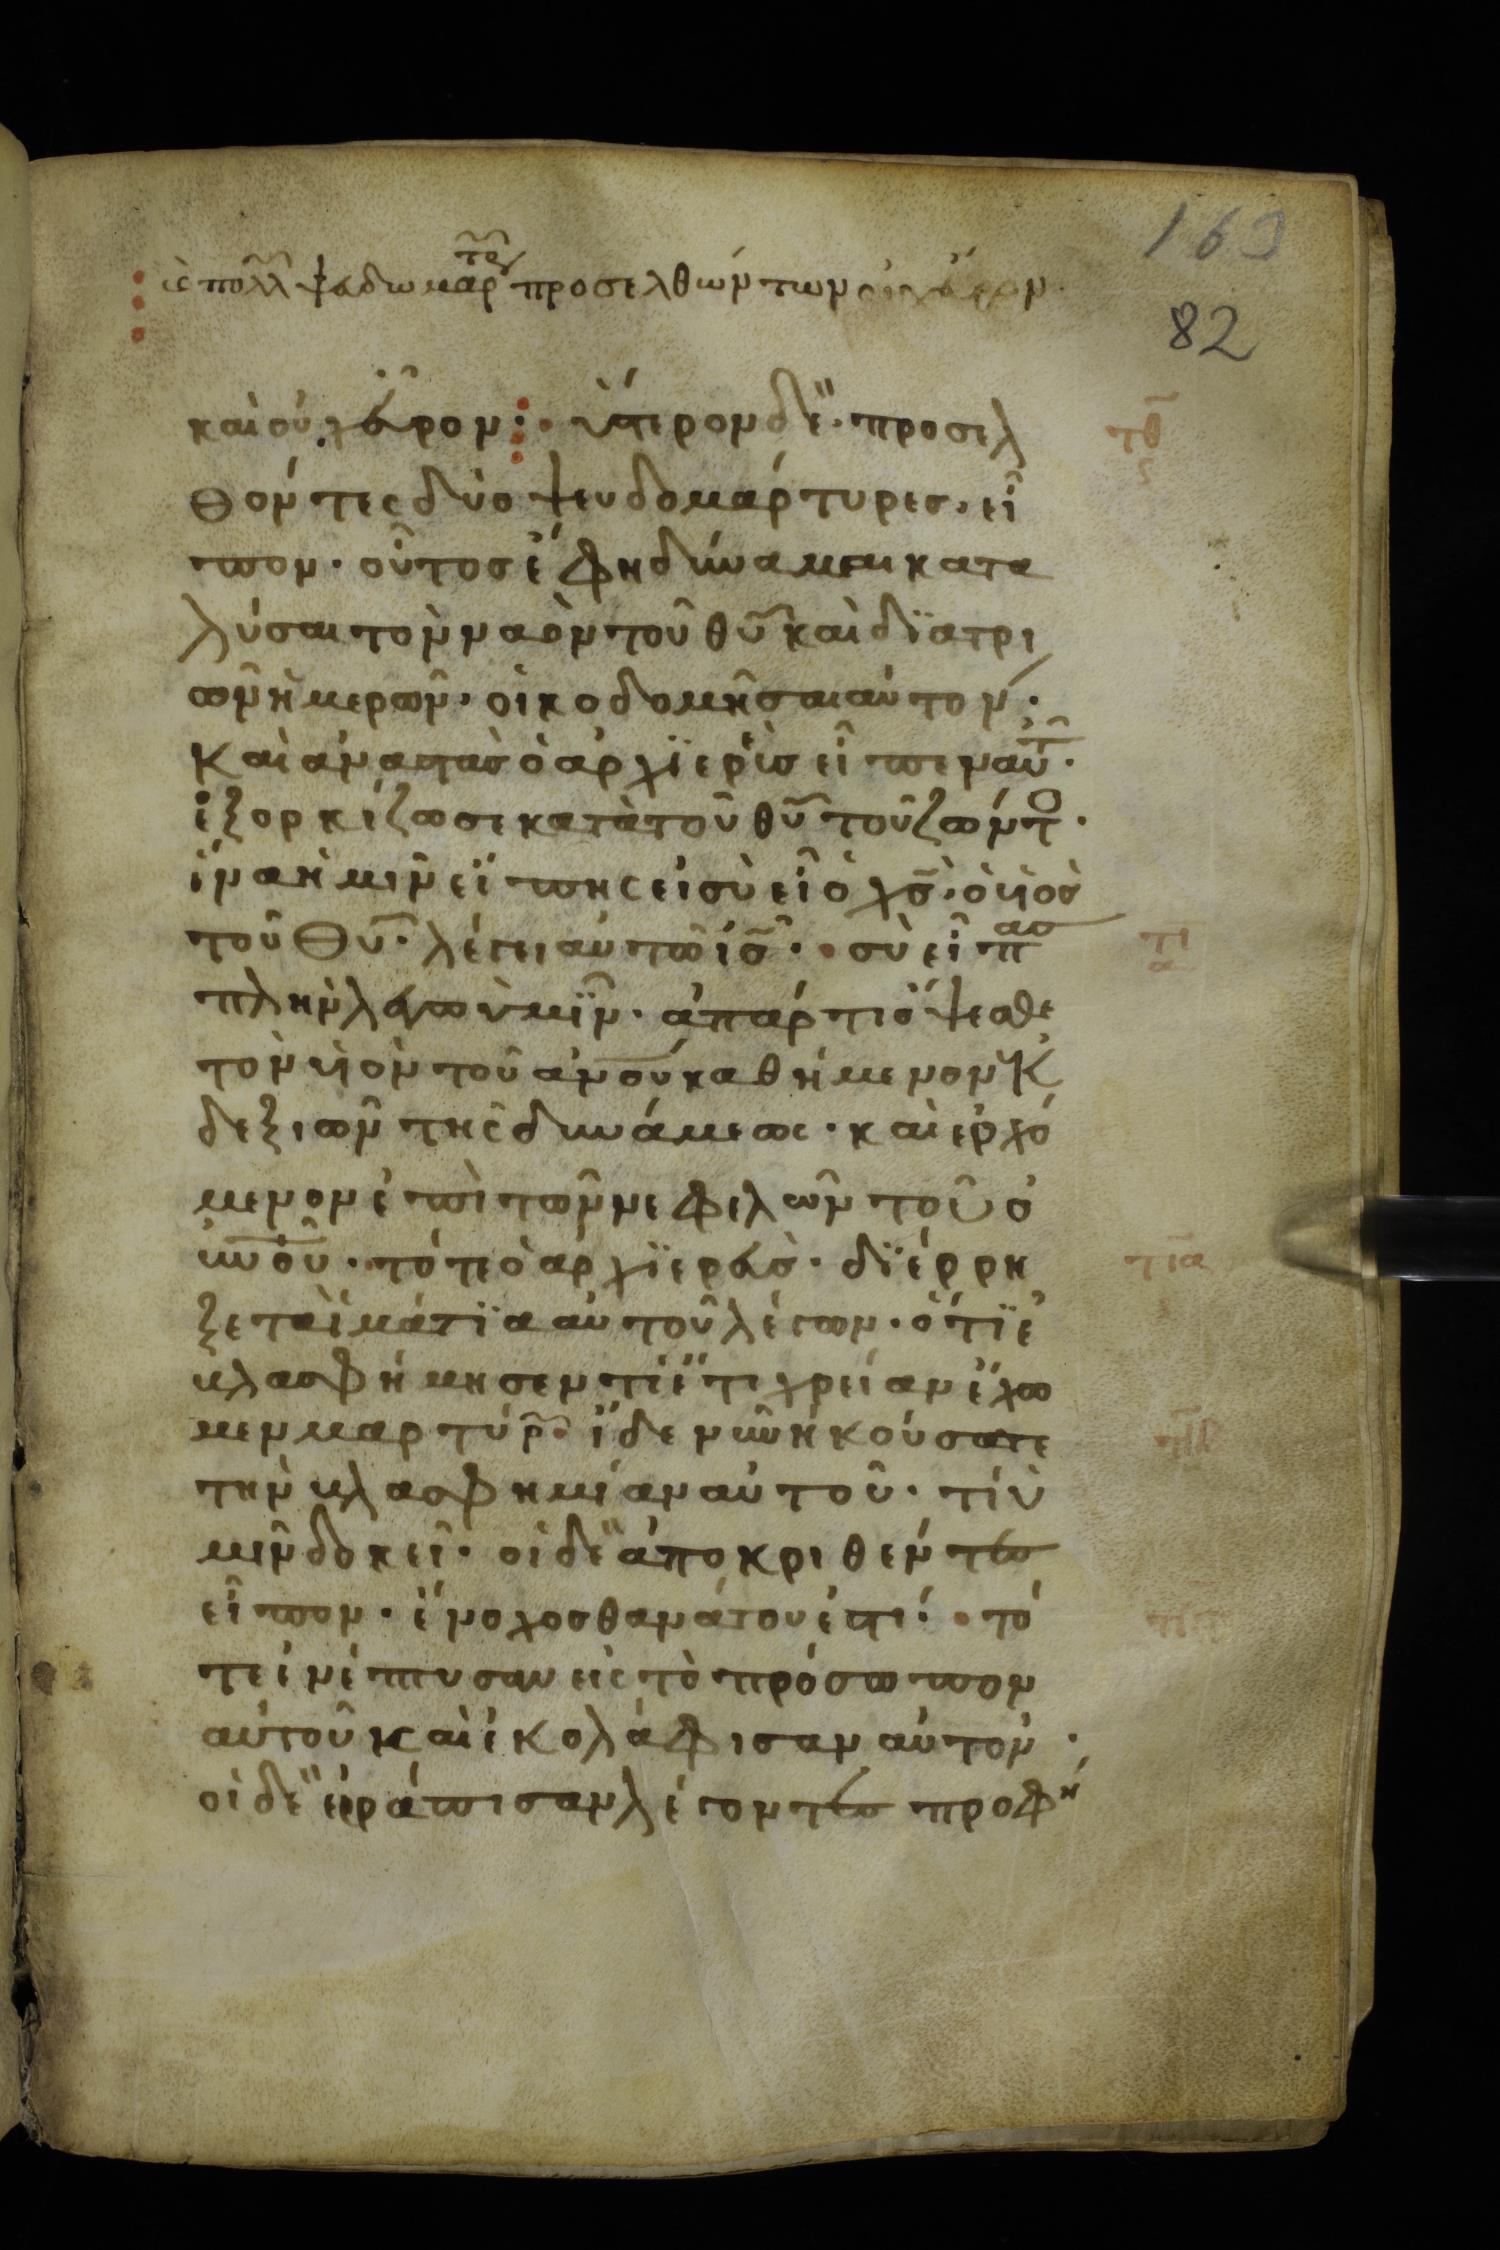 163
κ πολλ ψευδωμαρτυ προσελθώντων οὐχ εὗρον
82
καὶ οὐχ εὗρον : ὕστερον δὲ· προσελ
θόντες δύο ψευδομάρτυρες· εἶ
πον· οὗτος ἔφη δύναμαι κατα
λύσαι τὸν ναὸν τοῦ θυ̅ καὶ διατρι
ῶν ἡμερῶν· οἰκοδομῆσαι αὐτόν·
Καὶ ἀναστὰς ὁ ἀρχϊερεὺς εἶπεν αὐτ·
ἐξορκίζω σε κατὰ τοῦ θυ̅ τοῦ ζῶντο·
ἵνα ἡμῖν εἴπης εἰ σὺ εἶ ὁ χς̅· ὁ υἱὸς
τοῦ Θυ̅· λέγει αὐτῶ ὁ ις̅· σὺ εἶπας
πλὴν λέγω ὑμῖν· ἀπάρτι ὄψεσθε
τὸν υἱὸν τοῦ ἀνου̅ καθήμενον ἐκ
δεξιῶν τῆς δυνάμεως· καὶ ἐρχό
μενον ἐπὶ τῶν νεφελῶν τοῦ ο
υνου̅· τότε ὁ ἀρχϊερεὺς· δϊέρρη
ξε τὰ ἱμάτϊα αὐτοῦ λέγων· ὅτϊ ἐ
βλασφήμησεν τί ἔτι χρείαν ἔχω
μεν μαρτύρ· ἴδε νῦν ἠκούσατε
τὴν βλασφημίαν αὐτοῦ· τί ὑ
μῖν δοκεῖ· οἱ δὲ ἀποκριθέντες
εἶπον· ἔνοχος θανάτου ἐστί· τό
τε ἐνέπτυσαν εἰς τὸ πρόσωπον
αὐτοῦ καὶ ἐκολάφισαν αὐτόν·
οἱ δὲ ἐρράπισαν λέγοντες προφή